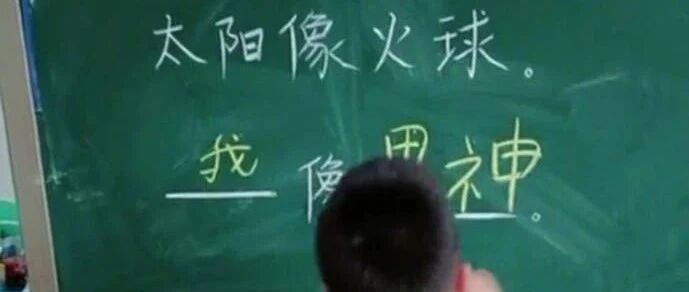 太阳像火球。
我像男神。